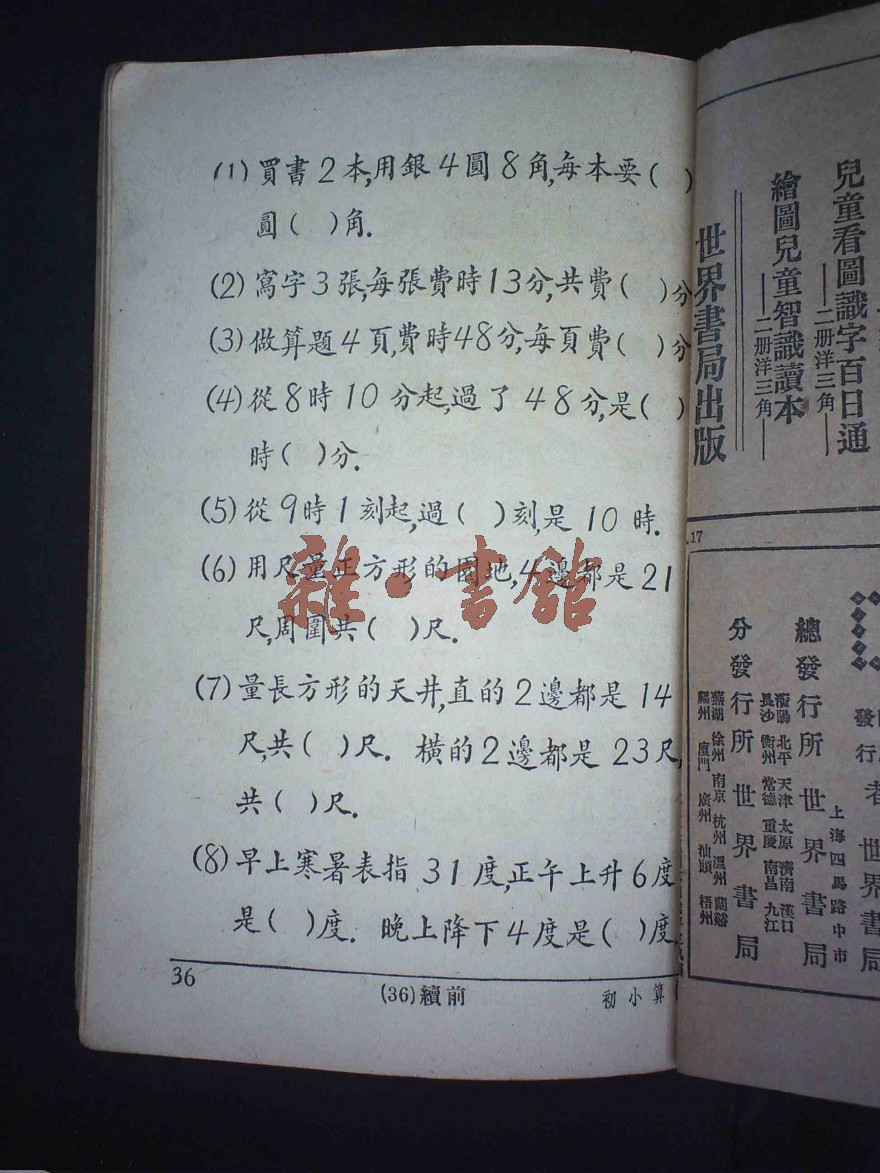 (1)買書2本,用銀4圓8角,每本要( )
圓( )角.
(2)寫字3張,每張費時13分,共費( )分
(3)做算題4頁,費時48分,每頁費( )分
(4)從8時10分起,過了48分,是( )
時( )分.
(5)從9時1刻起,過( )刻,是10時.
(6)用尺量正方形的園地,4邊都是21
尺,周圍共( )尺.
(7)量長方形的天井,直的2邊都是14
尺,共( )尺. 橫的2邊都是23尺,
共( )尺.
(8)早上寒暑表指31度,正午上升6度
是( )度. 晚上降下4度是( )度
36
(36)續前
初小算
雜·書館
兒童看圖識字百日通
——二册洋三角——
繪圖兒童智識讀本
——二册洋三角——
世界書局出版
17
發行者 世界書局
上海四馬路中市
總發行所 世界書局
瀋陽 北平 天津 太原 濟南 漢口
長沙 衡州 常德 重慶 南昌 九江
分發行所 世界書局
蕪湖 徐州 南京 杭州 溫州 蘭谿
福州 廈門 廣州 汕頭 梧州